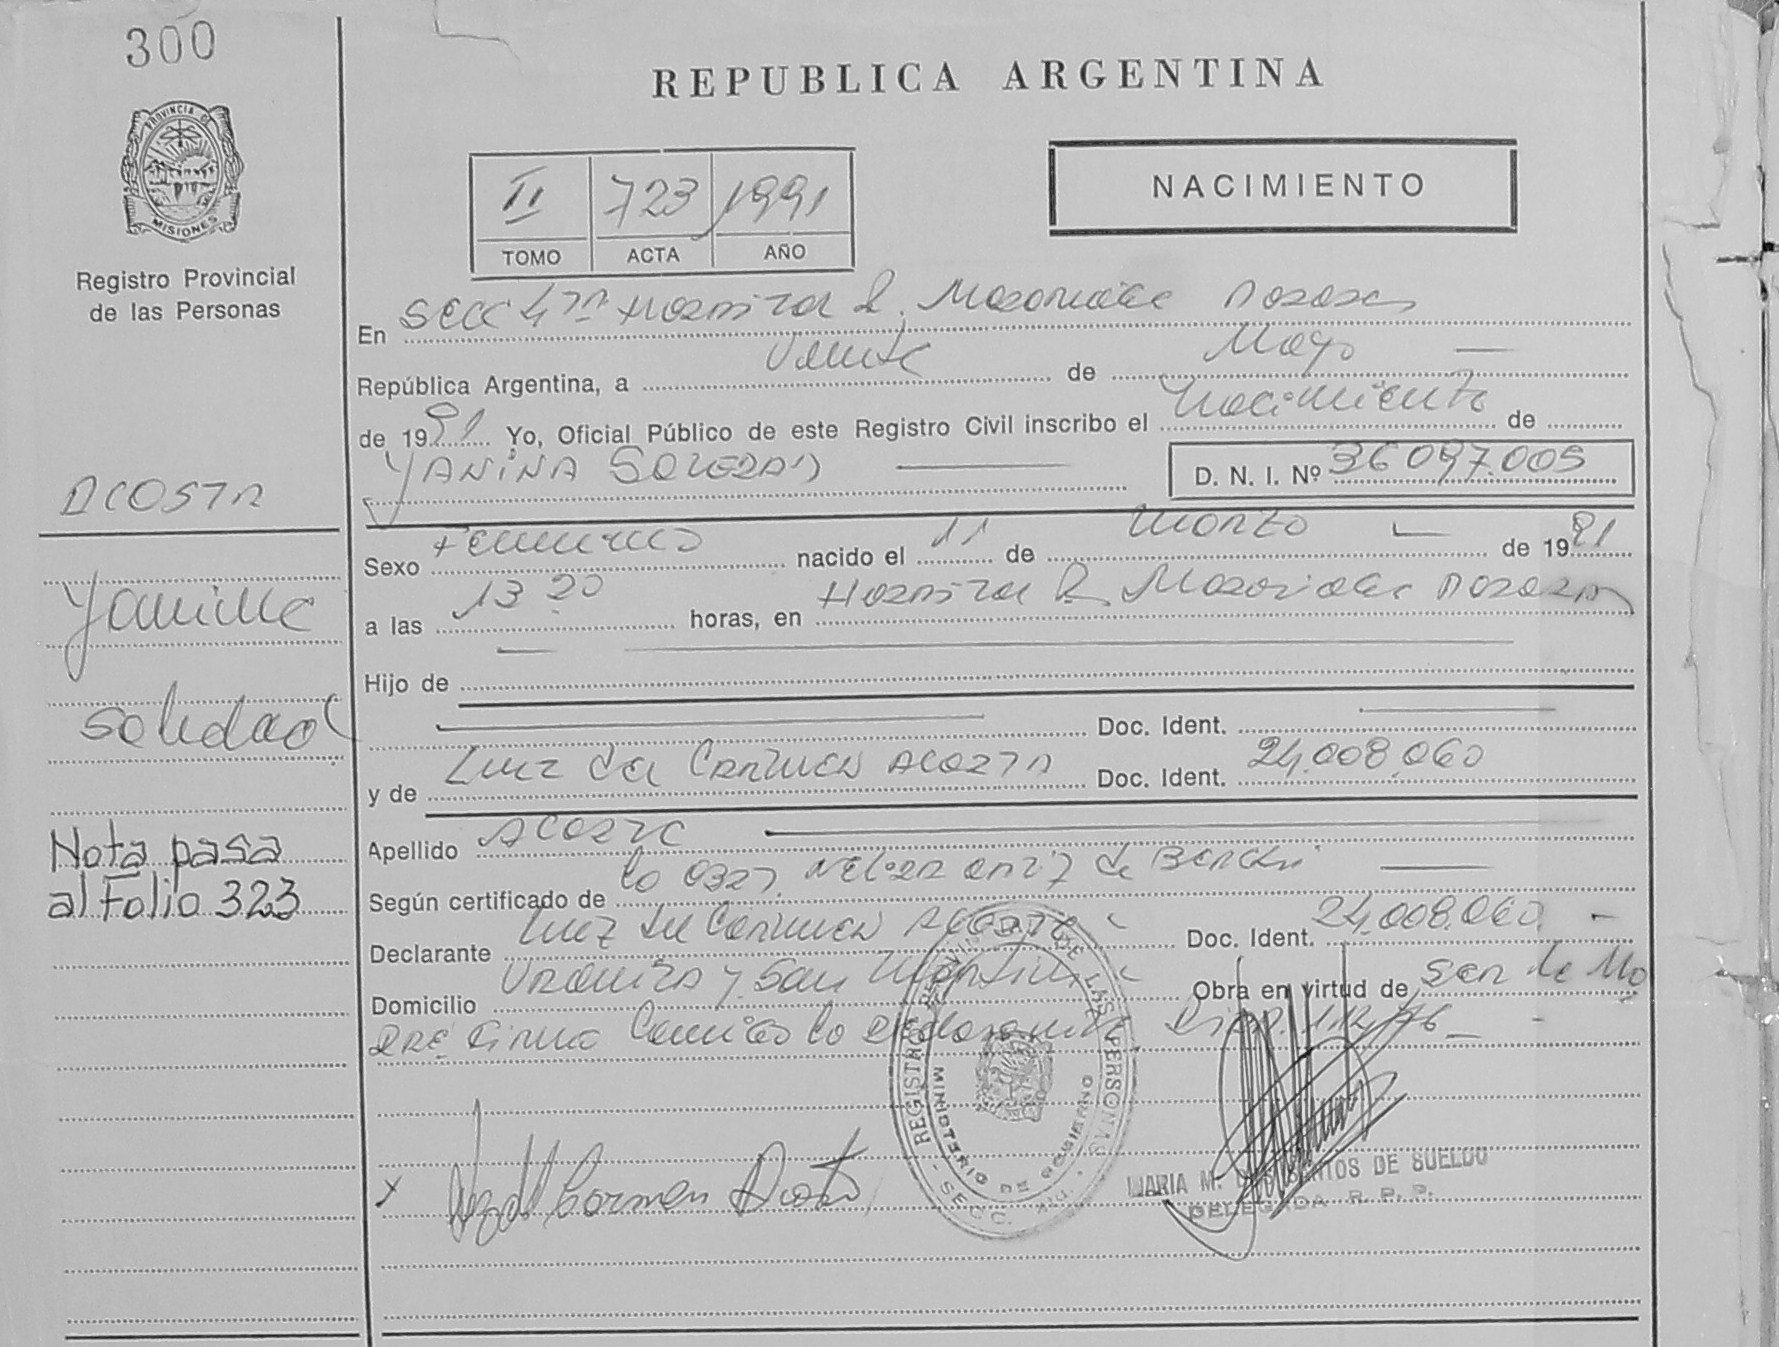 300
REPUBLICA ARGENTINA
PROVINCIA DE
MISIONES
Registro Provincial
de las Personas
II 723 1991
TOMO ACTA AÑO
NACIMIENTO
En Secc 4ta Hospital R. Madariaga Posadas
República Argentina, a Veinte de Mayo
de 1991 Yo, Oficial Público de este Registro Civil inscribo el Nacimiento de
YANINA SOLEDAD D. N. I. Nº 36 097.005
ACOSTA
Sexo Femenino nacido el 11 de Marzo de 1991
a las 13 20 horas, en Hospital R. Madariaga Posadas
Yanina
Soledad
Hijo de
Doc. Ident.
y de Luz del Carmen Acosta Doc. Ident. 24.008.060
Apellido Acosta
Según certificado de la Obst. de
Declarante Luz del Carmen Acosta Doc. Ident. 24.008.060.
Domicilio y San Martin Obra en virtud de ser la Ma
dre Firma la declarante Disp. 112/76
Nota pasa
al Folio 323
REGISTRO PROVINCIAL DE LAS PERSONAS
MINISTERIO DE GOBIERNO
SECC.
x Luz del Carmen Acosta
MARIA M. DOS SANTOS DE SUELDO
DELEGADA R. P. P.